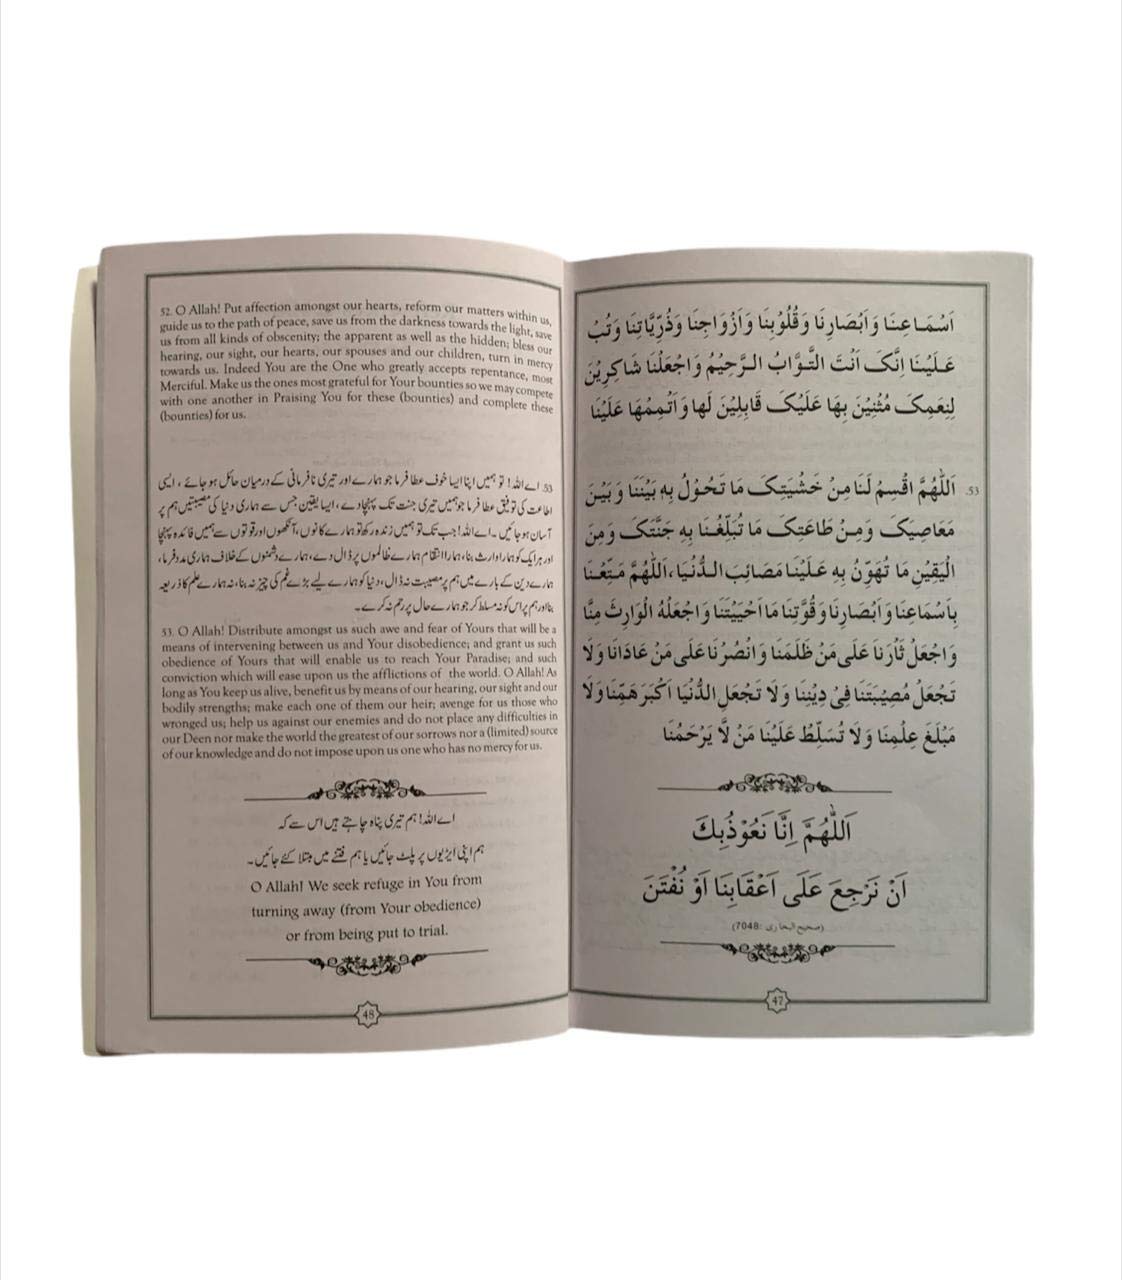 اَسْمَاعِنَا وَاَبْصَارِنَا وَقُلُوْبِنَا وَاَزْوَاجِنَا وَذُرِّيَّاتِنَا وَتُبْ
عَلَيْنَا اِنَّکَ اَنْتَ التَّوَّابُ الرَّحِيْمُ وَاجْعَلْنَا شَاكِرِيْنَ
لِنِعَمِکَ مُثْنِيْنَ بِهَا عَلَيْکَ قَابِلِيْنَ لَها وَاَتْمِمْهَا عَلَيْنَا
53. اَللّٰهُمَّ اقْسِمْ لَنَا مِنْ خَشْيَتِکَ مَا تَحُوْلُ بِهٖ بَيْنَنَا وَبَيْنَ
مَعَاصِيَکَ وَمِنْ طَاعَتِکَ مَا تُبَلِّغُنَا بِهٖ جَنَّتَکَ وَمِنَ
الْيَقِيْنِ مَا تُهَوِّنُ بِهٖ عَلَيْنَا مَصَائِبَ الدُّنْيَا، اَللّٰهُمَّ مَتِّعْنَا
بِاَسْمَاعِنَا وَاَبْصَارِنَا وَقُوَّتِنَا مَا اَحْيَيْتَنَا وَاجْعَلْهُ الْوَارِثَ مِنَّا
وَاجْعَلْ ثَأْرَنَا عَلٰى مَنْ ظَلَمَنَا وَانْصُرْنَا عَلٰى مَنْ عَادَانَا وَلَا
تَجْعَلْ مُصِيْبَتَنَا فِىْ دِيْنِنَا وَلَا تَجْعَلِ الدُّنْيَا اَكْبَرَ هَمِّنَا وَلَا
مَبْلَغَ عِلْمِنَا وَلَا تُسَلِّطْ عَلَيْنَا مَنْ لَّا يَرْحَمُنَا
اَللّٰهُمَّ اِنَّا نَعُوْذُبِكَ
اَنْ نَرْجِعَ عَلَى اَعْقَابِنَا اَوْ نُفْتَنَ
(صحیح البخاری: 7048)
47
52. O Allah! Put affection amongst our hearts, reform our matters within us,
guide us to the path of peace, save us from the darkness towards the light, save
us from all kinds of obscenity; the apparent as well as the hidden; bless our
hearing, our sight, our hearts, our spouses and our children, turn in mercy
towards us. Indeed You are the One who greatly accepts repentance, most
Merciful. Make us the ones most grateful for Your bounties so we may compete
with one another in Praising You for these (bounties) and complete these
(bounties) for us.
53. اے اللہ! تو ہمیں اپنا ایسا خوف عطا فرما جو ہمارے اور تیری نافرمانی کے درمیان حائل ہو جائے، ایسی
اطاعت کی توفیق عطا فرما جو ہمیں تیری جنت تک پہنچا دے، ایسا یقین جس سے ہماری دنیا کی مصیبتیں ہم پر
آسان ہو جائیں۔ اے اللہ! جب تک تو ہمیں زندہ رکھے تو ہمارے کانوں، آنکھوں اور قوتوں سے ہمیں فائدہ پہنچا
اور ہر ایک کو ہمارا وارث بنا، ہمارا انتقام ہمارے ظالموں پر ڈال دے، ہمارے دشمنوں کے خلاف ہماری مدد فرما،
ہمارے دین کے بارے میں ہم پر مصیبت نہ ڈال، دنیا کو ہمارے لیے بڑے غم کی چیز نہ بنا، نہ ہمارے علم کا ذریعہ
بنا اور ہم پر اس کو نہ مسلط کر جو ہمارے حال پر رحم نہ کرے۔
53. O Allah! Distribute amongst us such awe and fear of Yours that will be a
means of intervening between us and Your disobedience; and grant us such
obedience of Yours that will enable us to reach Your Paradise; and such
conviction which will ease upon us the afflictions of the world. O Allah! As
long as You keep us alive, benefit us by means of our hearing, our sight and our
bodily strengths; make each one of them our heir; avenge for us those who
wronged us; help us against our enemies and do not place any difficulties in
our Deen nor make the world the greatest of our sorrows nor a (limited) source
of our knowledge and do not impose upon us one who has no mercy for us.
اے اللہ! ہم تیری پناہ چاہتے ہیں اس سے کہ
ہم اپنی ایڑیوں پر پلٹ جائیں یا ہم فتنے میں مبتلا کئے جائیں۔
O Allah! We seek refuge in You from
turning away (from Your obedience)
or from being put to trial.
48